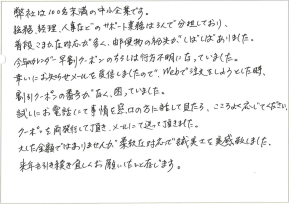 弊社は100名未満の中小企業です。
総務、経理、人事などのサポート業務は3人で分担しており、
普段こまかな対応が多く、郵便物の紛失がしばしばありました。
今年カレンダー早割クーポンのちらしは行方不明になっていました。
幸いにお知らせメールを受信しましたので、Webで注文をしようとした時、
割引クーポンの番号がなく、困っていました。
試しにお電話にて事情を窓口の方に話して見たら、こころよく応じてくださり、
クーポンを再発行して頂き、メールにて送って頂きました。
大した金額ではありませんが柔軟な対応で誠実さを実感致しました。
来年も引き続き宜しくお願いしたいと存じます。